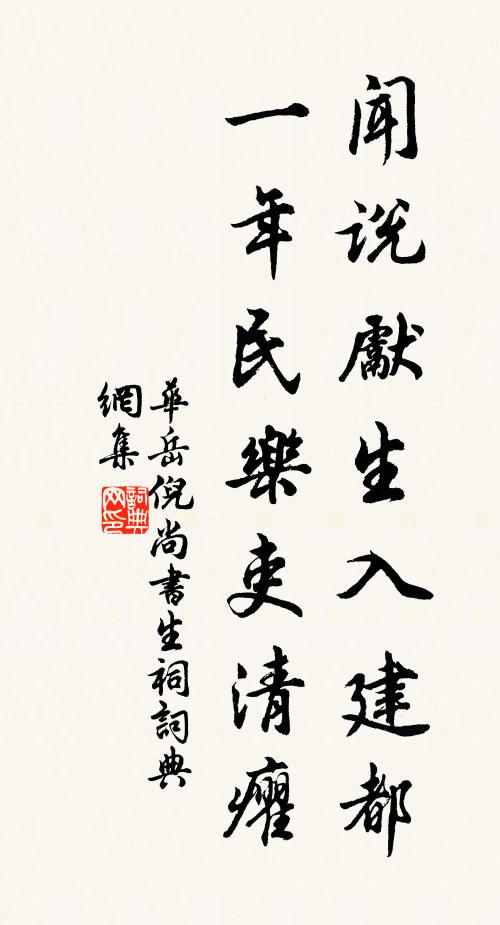 聞説獻生入建都
一年民樂吏清癯
華岳倪尚書生祠詞典
網集
詞典
网印